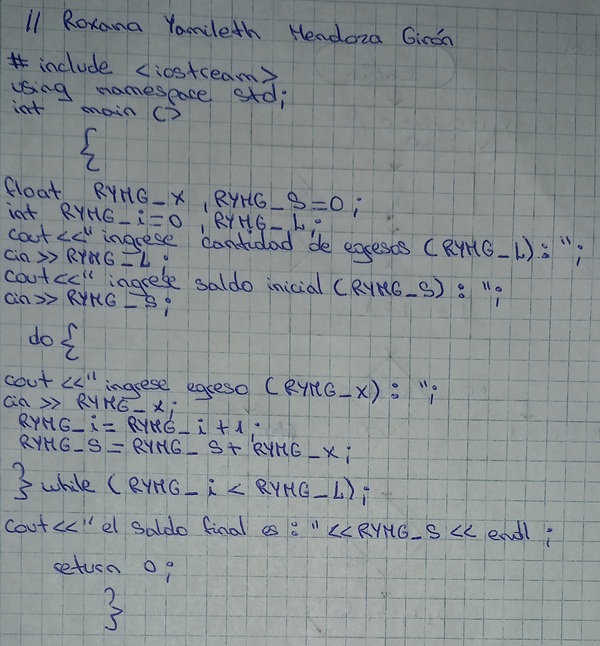 // Roxana Yamileth Mendoza Girón
# include <iostream>
using namespace std;
int main ()
{
float RYMG_x , RYMG_S=0;
int RYMG_i=0 , RYMG_L;
cout <<" ingrese cantidad de egresos (RYMG_L): ";
cin >> RYMG_L;
cout <<" ingrese saldo inicial (RYMG_S): ";
cin >> RYMG_S;
do {
cout <<" ingrese egreso (RYMG_x): ";
cin >> RYMG_x;
RYMG_i= RYMG_i +1;
RYMG_S= RYMG_S+ RYMG_x;
} while (RYMG_i < RYMG_L);
cout <<" el saldo final es: " << RYMG_S << endl ;
return 0;
}